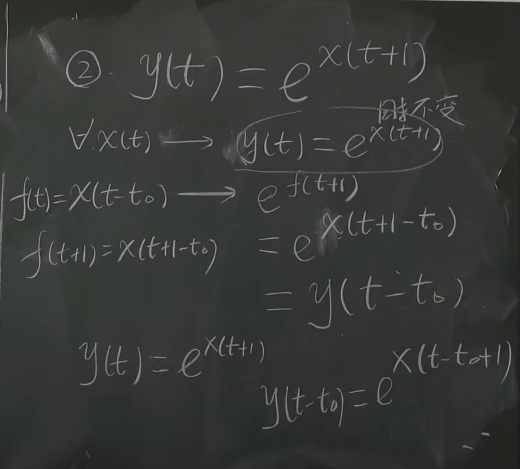 ② y(t) = e^{x(t+1)}
时不变
∀ x(t) → y(t) = e^{x(t+1)}
f(t) = x(t-t₀) → e^{f(t+1)}
f(t+1) = x(t+1-t₀) = e^{x(t+1-t₀)}
= y(t-t₀)
y(t) = e^{x(t+1)}
y(t-t₀) = e^{x(t-t₀+1)}